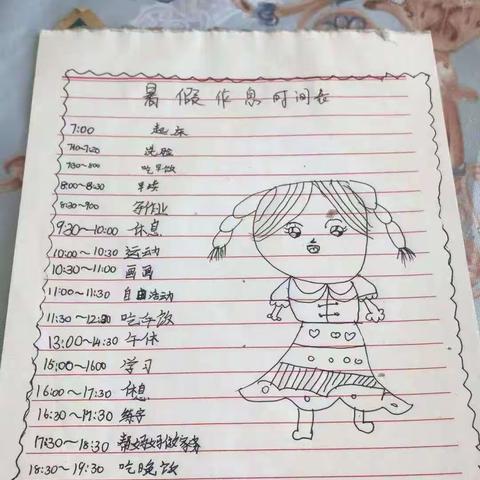 暑假作息时间表
7:00 起床
7:10~7:20 洗脸
7:30~8:00 吃早饭
8:00~8:30 早读
8:30~9:00 写作业
9:30~10:00 休息
10:00~10:30 运动
10:30~11:00 画画
11:00~11:30 自由活动
11:30~12:30 吃午饭
13:00~14:30 午休
15:00~16:00 学习
16:00~17:30 休息
16:30~17:30 练字
17:30~18:30 帮妈妈做家务
18:30~19:30 吃晚饭